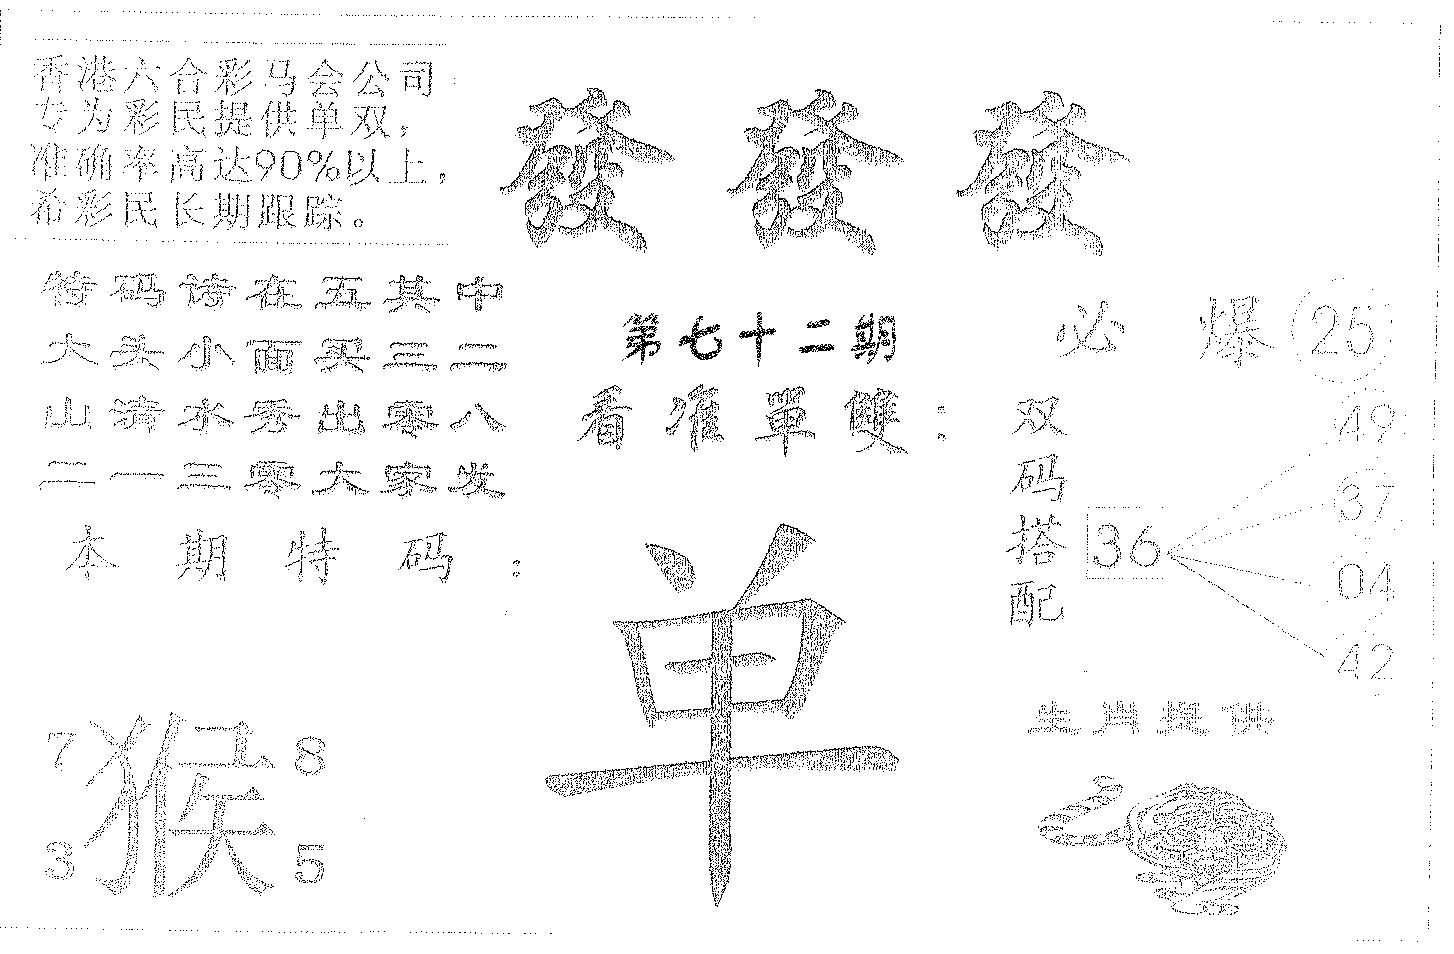 香港六合彩马会公司
专为彩民提供单双，
准确率高达90%以上，
希彩民长期跟踪。
發 發 發
特码诗在五其中
大头小面买三二
山清水秀出零八
二一三零大家发
本期特码：
第七十二期
看准單雙：
单
必爆 25
双码搭配
36
49
37
04
42
生肖提供
7 猴 8
3 5